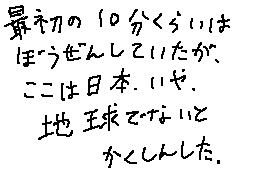 最初の10分くらいは
ぼうぜんしていたが、
ここは日本.いや、
地球でないと
かくしんした。